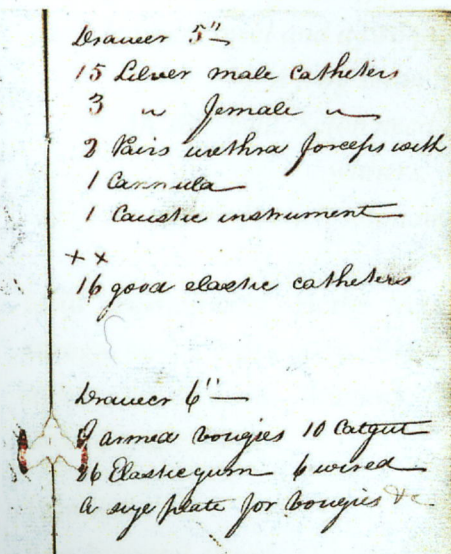 Drawer 5"
15 Silver male catheters
3 " female "
2 Pairs urethra forceps with
1 Cannula
1 Caustic instrument
++
16 good elastic catheters
Drawer 6"
9 armed bougies 10 Catgut
26 Elastic gum 6 wired
A size plate for bougies &c